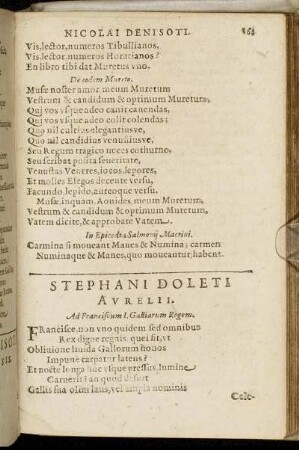 NICOLAI DENISOTI. 161
Vis, lector, numeros Tibullianos,
Vis, lector, numeros Horatianos?
En libro tibi dat Muretus vno.
De eodem Mureto.
Musæ noster amor, meum Muretum
Vestrum & candidum & optimum Muretum,
Qui vos vsque adeo canit canendas,
Qui vos vsque adeo colit colendas:
Quo nil cultius elegantiusve,
Quo nil candidius venustiusve,
Seu Regum tragico vices cothurno,
Seu scribat posita seueritate,
Venustas Veneres, iocos, lepores,
Et molles Elegos decente versu,
Facundo, lepido, aureoque versu.
Musæ, inquam, Aonides, meum Muretum,
Vestrum & candidum & optimum Muretum,
Vatem dicite, & approbate Vatem.
In Epicedia Salmonij Macrini.
Carmina si moueant Manes & Numina; carmen
Numinaque & Manes, quo moueantur, habent.
STEPHANI DOLETI
AVRELII.
Ad Franciscum I. Galliarum Regem.
Francisce, non vno quidem sed omnibus
Rex digne regnis, quei sit, vt
Obliuione liuida Gallorum honos
Impune carpatur latens?
Et nocte longa huc vsque pressus, lumine
Carnerit? an quod desit
Gallis sua olim laus, vel ampla nominis
Cele-